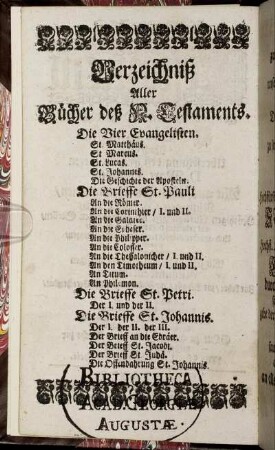 Verzeichniß
Aller
Bücher deß N. Testaments.
Die Vier Evangelisten.
St. Matthäus.
St. Marcus.
St. Lucas.
St. Johannes.
Die Geschichte der Aposteln.
Die Brieffe St. Pauli
An die Römer.
An die Corinthier / I. und II.
An die Galater.
An die Epheser.
An die Philipper.
An die Colosser.
An die Thessalonicher / I. und II.
An den Timotheum / I. und II.
An Titum.
An Philemon.
Die Brieffe St. Petri.
Der I. und der II.
Die Brieffe St. Johannis.
Der I. der II. der III.
Der Brieff an die Ebräer.
Der Brieff St. Jacobi.
Der Brieff St. Judä.
Die Offenbahrung St. Johannis.
BIBLIOTHECA
ACAD. GEORGIÆ
AUGUSTÆ.